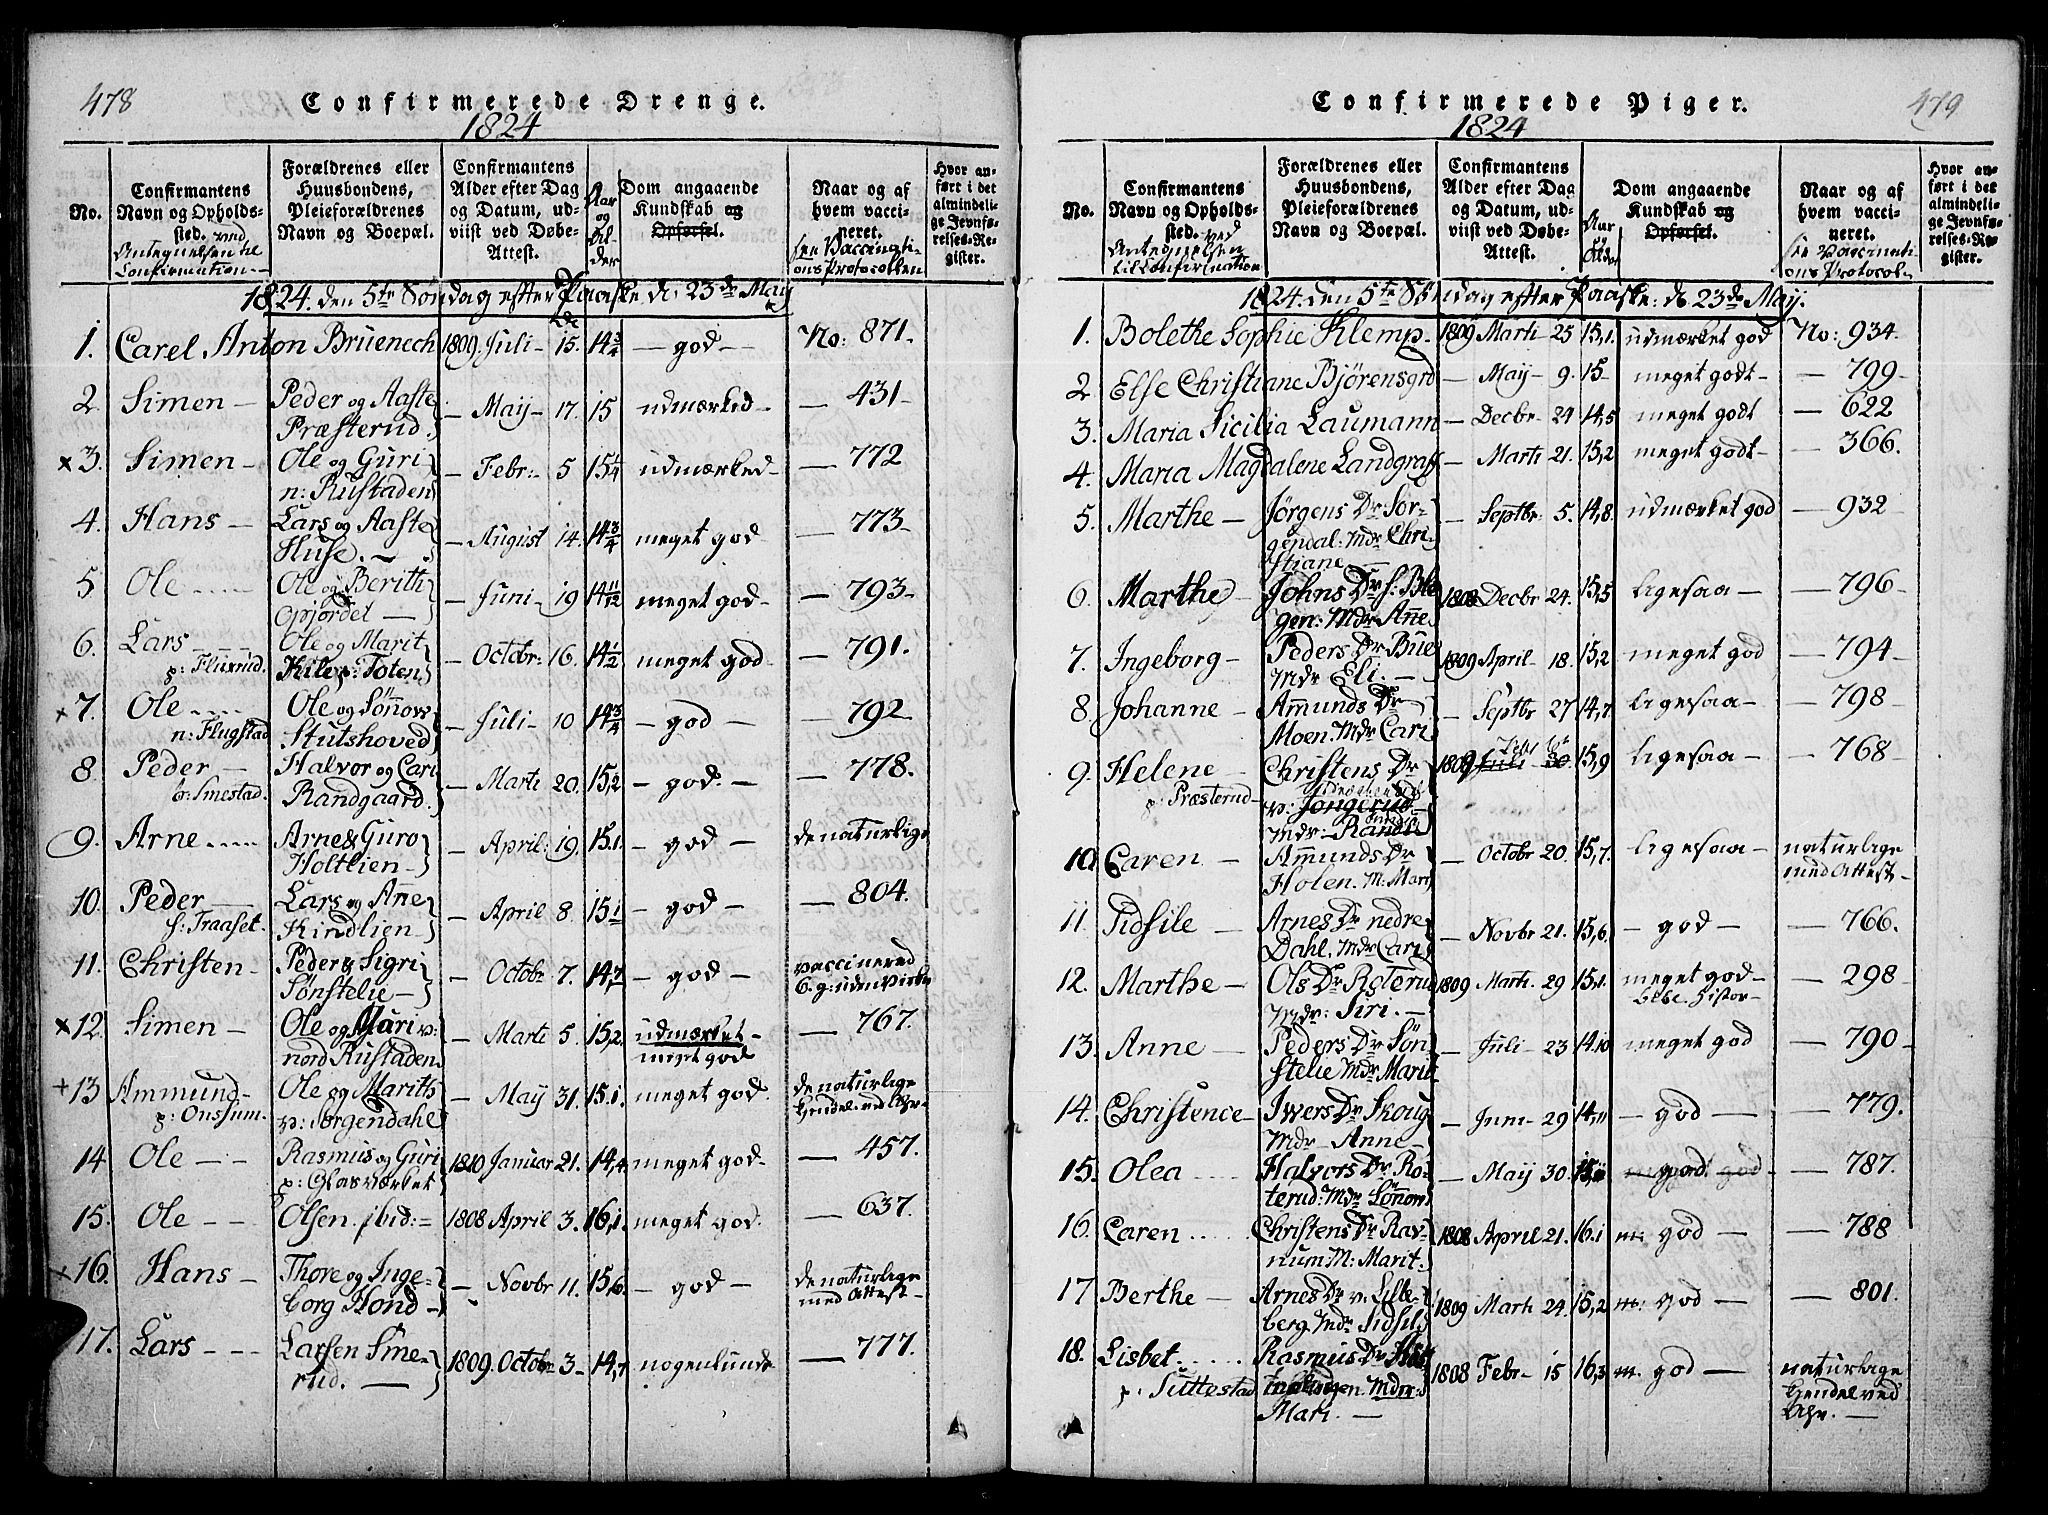 478 Confirmerede Drenge.
1824
No.
Confirmantens Navn og Opholdssted. med Antegnelsen til Confirmation
Forældrenes eller Huusbondens, Pleieforældrenes Navn og Boepæl.
Confirmantens Alder efter Dag og Datum, udviist ved Døbe-Attest.
Aar og Alder
Dom angaaende Kundskab og Opførsel.
Naar og af hvem vaccineret. see Vaccinations Protocollen
Hvor anført i det almindelige Jevnførelses-Register.
1824. den 5te Søndag efter Paaske d: 23de May
1. Carel Anton Bruenech 1809 Juli 15. 14 3/4 god No: 871.
2. Simen Peder og Aaste Præsterud. May 17. 15 udmærked 431
x3. Simen Ole og Guri n: Rustaden Febr: 5 15 1/4 udmærked 772
4. Hans Lars og Aaste Huse. August 14. 14 3/4 meget god 773
5 Ole Ole og Berith Opjordet Juni 19 14 11/12 meget god 793
6. Lars p: Fluxrud. Ole og Marit Kile p: Toten Octobr: 16. 14 1/2 meget god 791.
x7. Ole n: Flugstad Ole og Sønnow Stutshoved Juli 10 14 3/4 god 792
8. Peder o: Smestad. Halvor og Cari Randgaard. Marti 20. 15,2 god 778.
9. Arne Arne & Guro Holtlien April 19. 15.1. god de naturlige
10. Peder s: Traaset. Lars og Anne Kindlien April 8. 15 1 god 804.
11. Christen Peder & Sigri Sønstelie Octobr 7. 14,7 god vaccinered 6. g: uden Virkn
x12. Simen Ole og Mari v: nord Rustaden Marti 5. 15,2. udmærket meget god 767.
+13 Ammund p: Onssum. Ole og Marith v: Sørgendahl May 31. 15.1. meget god. de naturlige Kjendel. ved Ahr
14 Ole Rasmus og Guri p: Glasværket 1810 Januar 21. 14,4 meget god 457.
15. Ole Olsen ibid: 1808 April 3. 16,1. meget god. 637.
x16. Hans Thore og Ingeborg Hond Novbr 11. 15,6. god de naturlige med Attest
17. Lars Larsen Smerud. 1809. Octobr 3 14,7 nogenlunde 777.
Confirmerede Piger. 479
1824
No.
Confirmantens Navn og Opholdssted. med Antegnelsen til Confirmation
Forældrenes eller Huusbondens, Pleieforældrenes Navn og Boepæl.
Confirmantens Alder efter Dag og Datum, udviist ved Døbe-Attest.
Aar og Alder
Dom angaaende Kundskab og Opførsel.
Naar og af hvem vaccineret. see Vaccinations Protocol
Hvor anført i det almindelige Jevnførelses-Register.
1824. den 5te Søndag efter Paaske: d: 23de May.
1. Bolethe Sophie Klemp 1809 Marti 25 15,1. udmærket god No: 934.
2 Else Christiane Bjørensgrd May 9. 15 meget godt 799
3. Maria Sicilia Laumann Decbr 24 14,5 meget godt 622
4. Maria Magdalene Landgraff Marti 21. 15,2 meget godt 366.
5. Marthe Jørgens Dr Sørgendal: Mdr Christiane Septbr 5. 14,8. udmærket god 932
6. Marthe Johns Dr s. Blegen: Mdr Anne 1808 Decbr 24. 15,5 ligesaa 796
7. Ingeborg Peders Dr Bue Mdr Eli. 1809 April 18. 15,2 meget god 794
8. Johanne Ammunds Dr Moen. Mdr Cari Septbr 27 14,7 ligesaa 798
9. Helene p: Præsterud Christens Dr v: Jongerud Mdr: Randi 1809 Juli 30. 15,9 ligesaa 768
10. Caren Ammunds Dr Holen. M: Mari Octobr 20. 15,7. ligesaa naturlige med Attest
11. Sidsile Arnes Dr nedre Dahl. Mdr Cari Novbr 21. 15,6. god 766.
12. Marthe Ols Dr Roterud Mdr: Siri. 1809 Marti 29 15.1. meget god 298
13. Anne Peders Dr Sønstelie Mdr Marit Juli 23 14.10 meget god 790
14. Christence Iwers Dr Skoug Mdr Anne Juni 29 14,11 god 779.
15. Olea Halvors Dr Roterud: Mdr Sønnow May 30. 15 god 787.
16. Caren Christens Dr Ravnum M: Marit. 1808 April 21. 16.1 m: god 788
17 Berthe Arnes Dr v: Lilleberg. Mdr Sidsil 1809 Marti 24. 15,2 m: god 801.
18. Lisbet p: Suttestad Rasmus Dr Mdr: Mari 1808 Febr 15 16,3 m. god naturlige Kjendel ved Ahr.